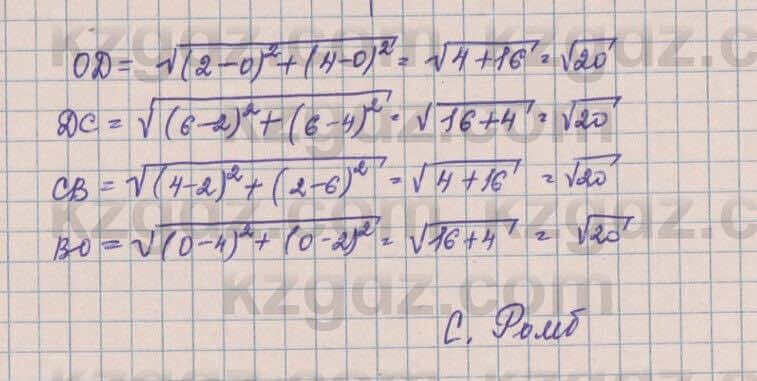 OD = √(2-0)²+(4-0)² = √4+16 = √20
DC = √(6-2)²+(6-4)² = √16+4 = √20
CB = √(4-2)²+(2-6)² = √4+16 = √20
BO = √(0-4)²+(0-2)² = √16+4 = √20
C. Ромб
kzgdz.com